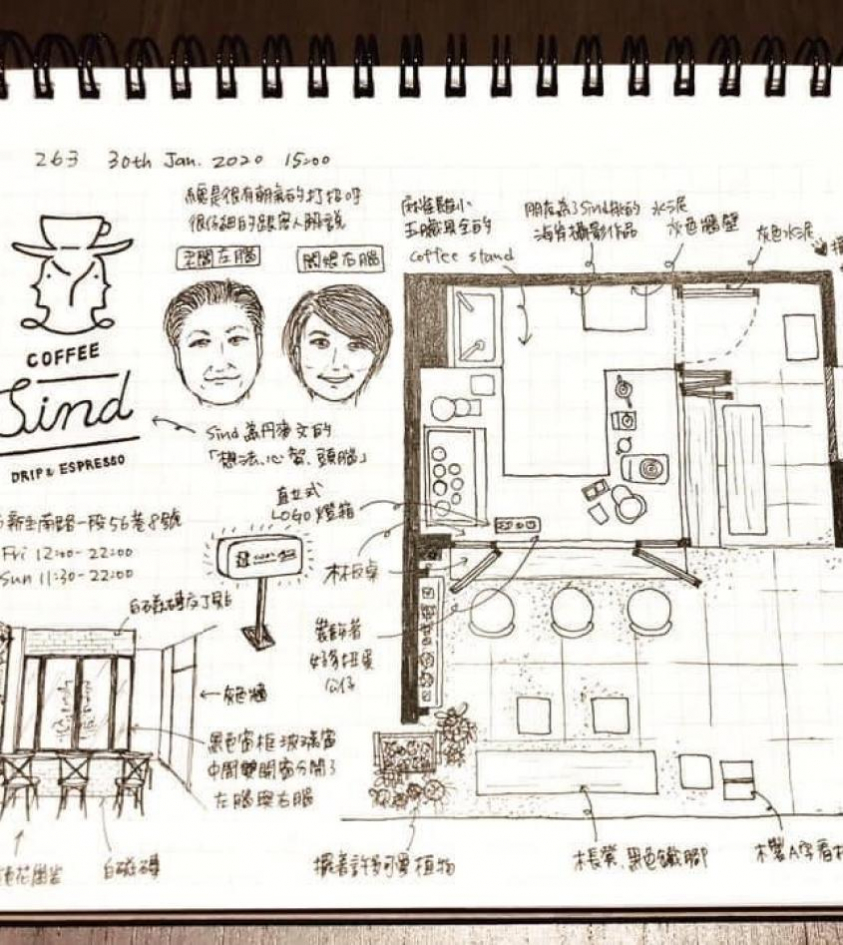 263 30th Jan. 2020 15:00
總是很有朝氣的打招呼
很仔細的跟客人解說
老闆左腦
闆娘右腦
麻雀雖小
五臟俱全的
coffee stand
朋友為了Sind拍的
海膽攝影作品
水泥
灰色牆壁
灰色水泥
COFFEE
Sind
DRIP & ESPRESSO
Sind為丹麥文的
「想法、心智、頭腦」
新生南路一段56巷8號
Fri 12:00-22:00
Sun 11:30-22:00
直立式
LOGO燈箱
木板桌
裝飾著
好多扭蛋
公仔
白磁磚反丁貼
黑色窗框玻璃窗
中間雙開窗分開了
左腦與右腦
白磁磚
擺著許多可愛植物
木長凳、黑色鐵腳
木製A字看板